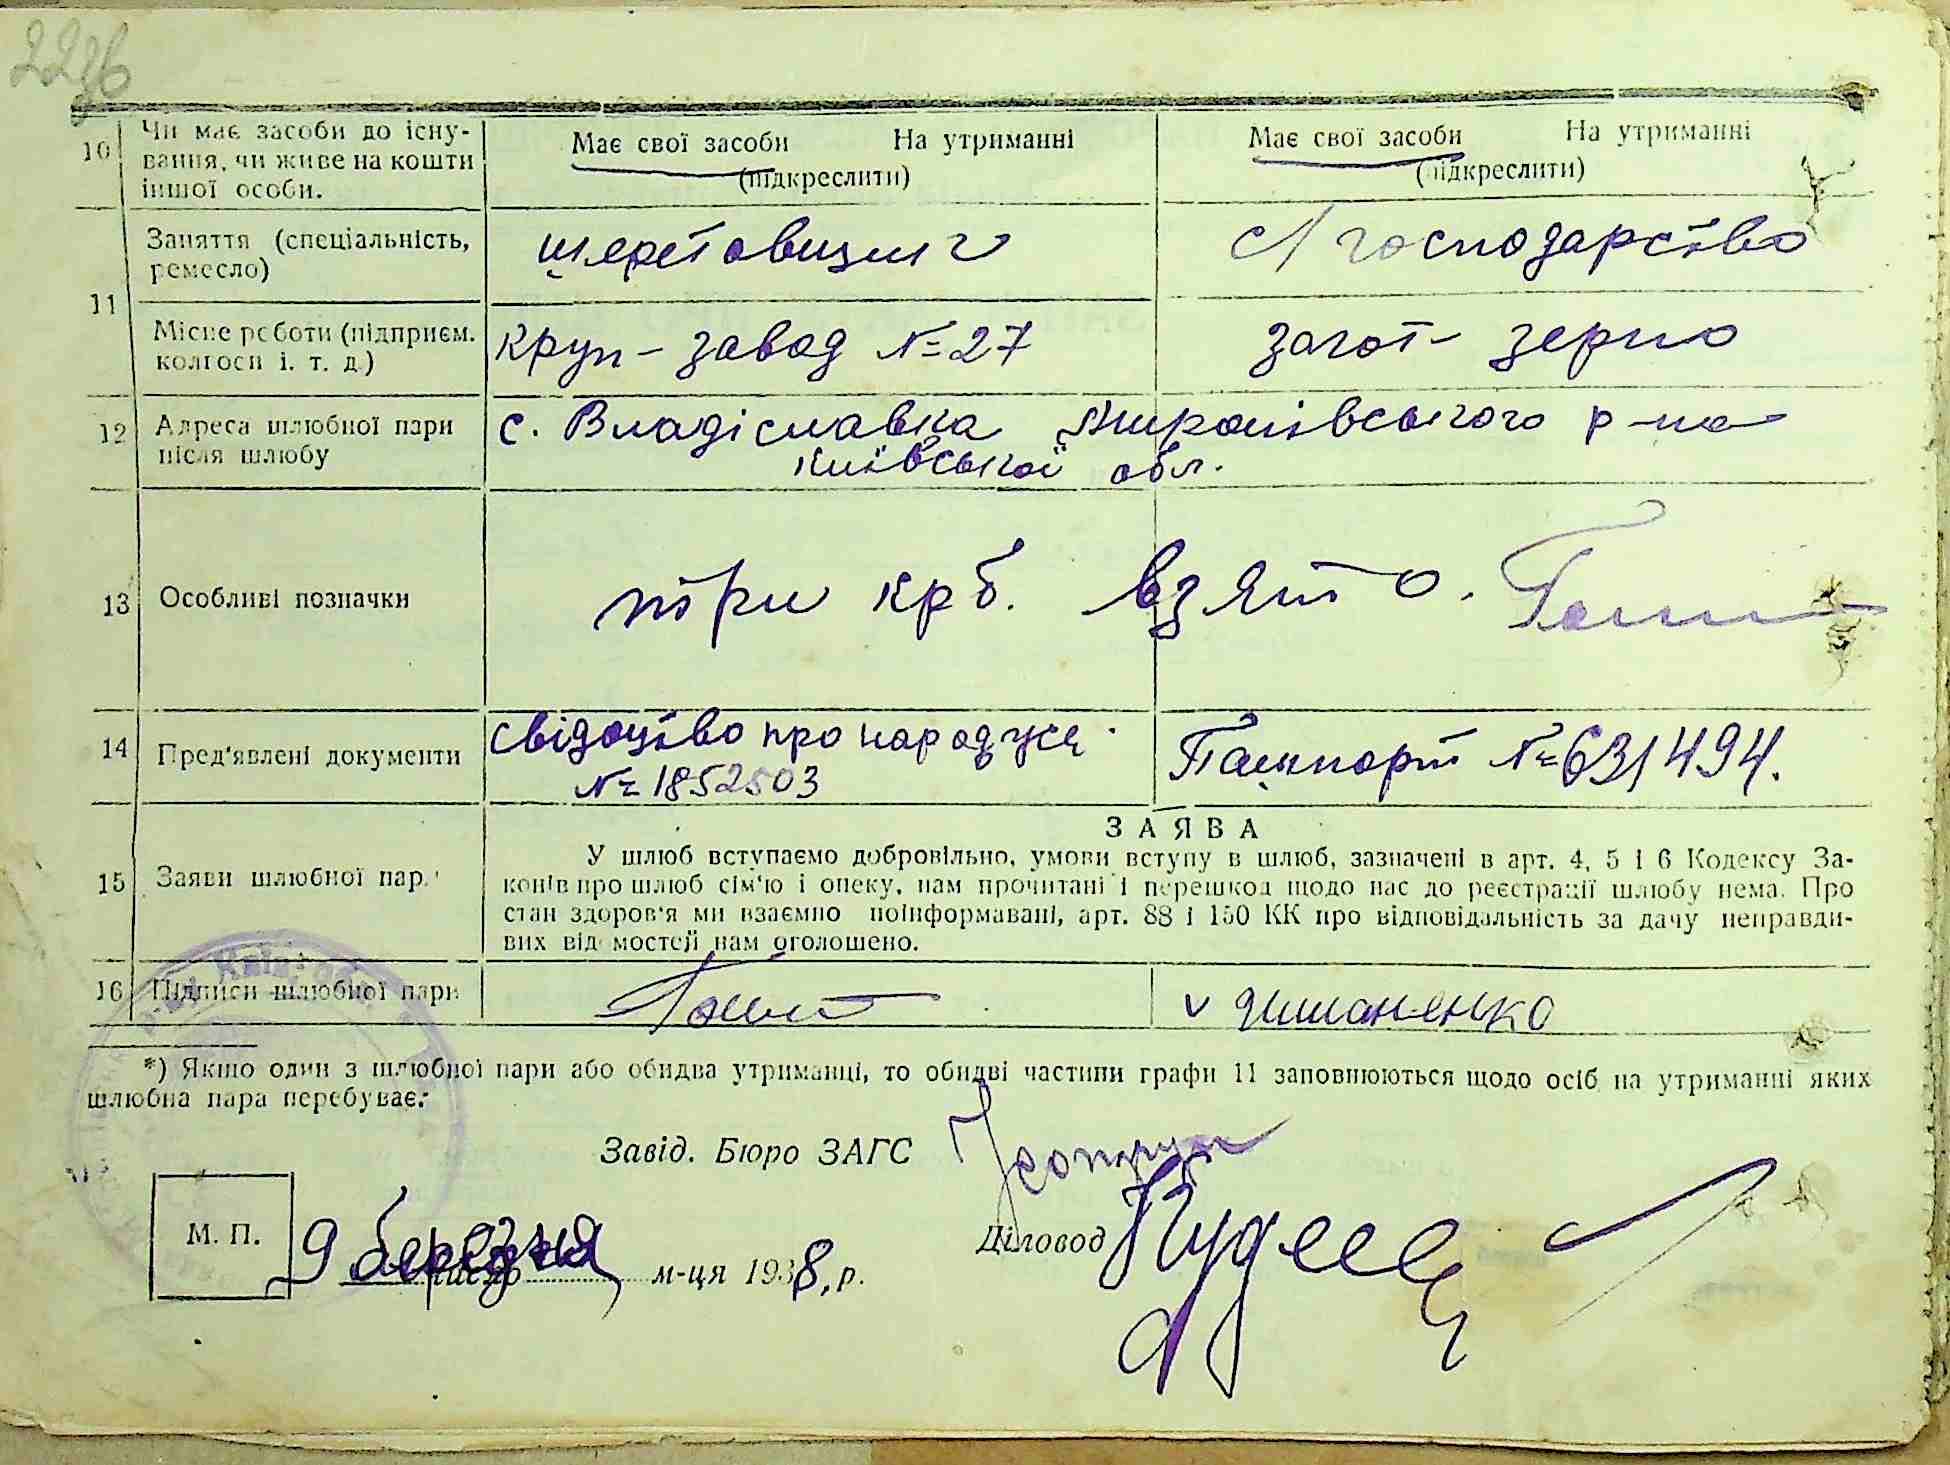 10 Чи має засоби до існу-
вання, чи живе на кошти
іншої особи.
Має свої засоби На утриманні
(підкреслити)
Має свої засоби На утриманні
(підкреслити)
11
Заняття (спеціальність,
ремесло)
шеретовщик
с/господарство
Місце роботи (підприєм.
колгосп і. т. д.)
круп-завод №27
загот-зерно
12 Адреса шлюбної пари
після шлюбу
с. Владіславка Миронівського р-на
Київської обл.
13 Особливі позначки
три крб. взято.
14 Пред'явлені документи
свідоцтво про народжен
№1852503
Пашпорт №631494.
15 Заяви шлюбної пари
ЗАЯВА
У шлюб вступаємо добровільно, умови вступу в шлюб, зазначені в арт. 4, 5 і 6 Кодексу За-
конів про шлюб сім'ю і опеку, нам прочитані і перешкод щодо нас до реєстрації шлюбу нема. Про
стан здоров'я ми взаємно поінформавані, арт. 88 і 150 КК про відповідальність за дачу неправди-
вих відомостей нам оголошено.
16 Підписи шлюбної пари
*) Якшо один з шлюбної пари або обидва утриманці, то обидві частини графи 11 заповнюються щодо осіб на утриманні яких
шлюбна пара перебуває.
Завід. Бюро ЗАГС
М. П.
9 березня число м-ця 1938, р.
Діловод